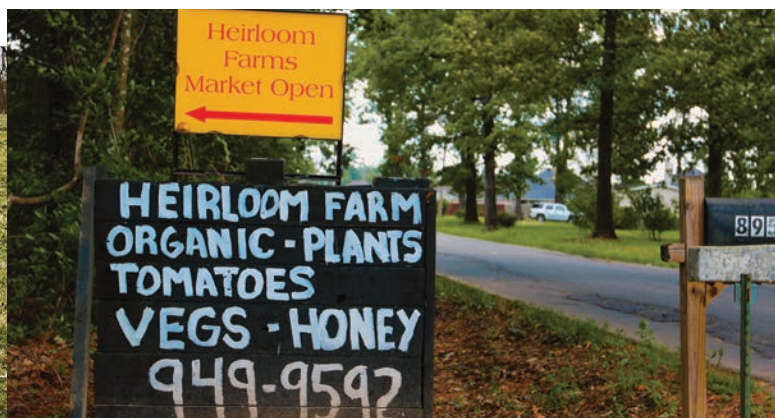 Heirloom
Farms
Market Open
HEIRLOOM FARM
ORGANIC - PLANTS
TOMATOES
VEGS - HONEY
949-9592
895